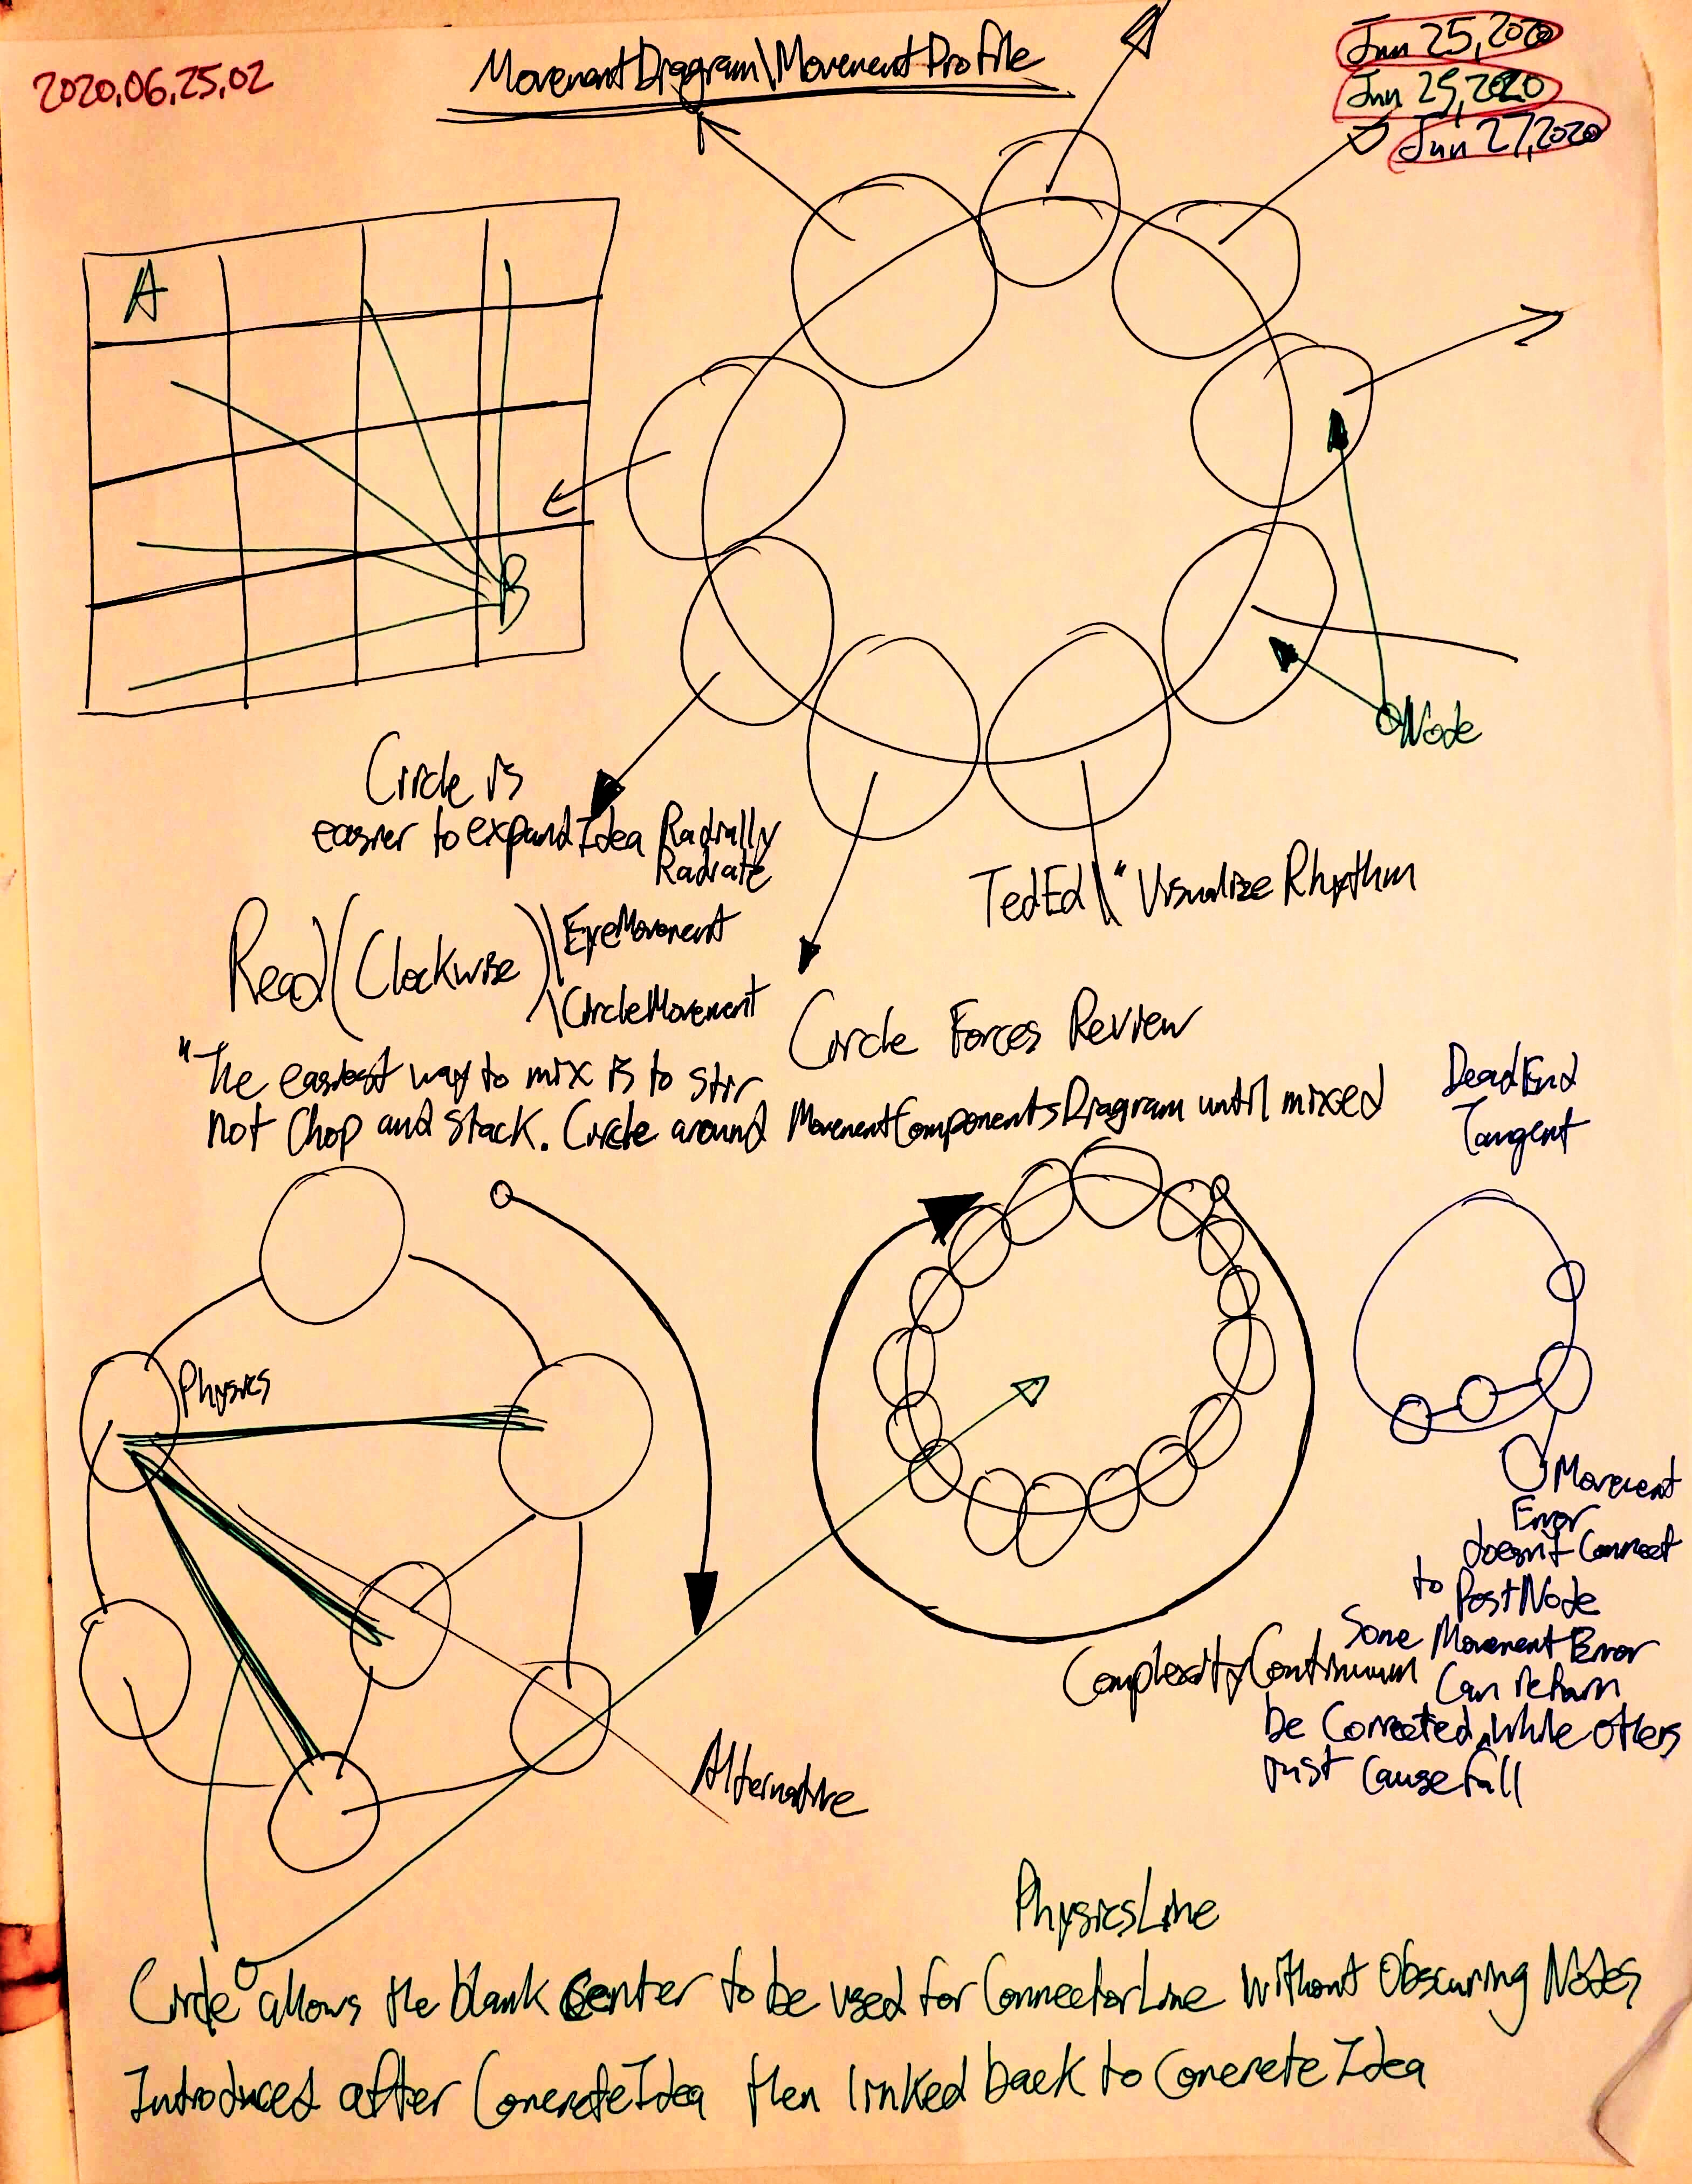 2020.06.25.02
MovementDiagram\MovementProfile
Jun 25, 2020
Jun 25, 2020
Jun 27, 2020
A
B
Node
Circle is
easier to expand Idea Radially
Radiate
TedEd\"Visualize Rhythm
Read(Clockwise)\EyeMovement
\CircleMovement
Circle Forces Review
"The easiest way to mix is to stir
not Chop and Stack. Circle around MovementComponentsDiagram until mixed
DeadEnd
Tangent
Physics
Movement
Error
doesn't Connect
to PostNode
Some Movement Error
Can return
be Corrected, while others
just Cause fall
ComplexityContinuum
Alternative
PhysicsLine
Circle allows the blank Center to be used for ConnectorLine without Obscuring Nodes
Introduced after ConcreteIdea then linked back to ConcreteIdea